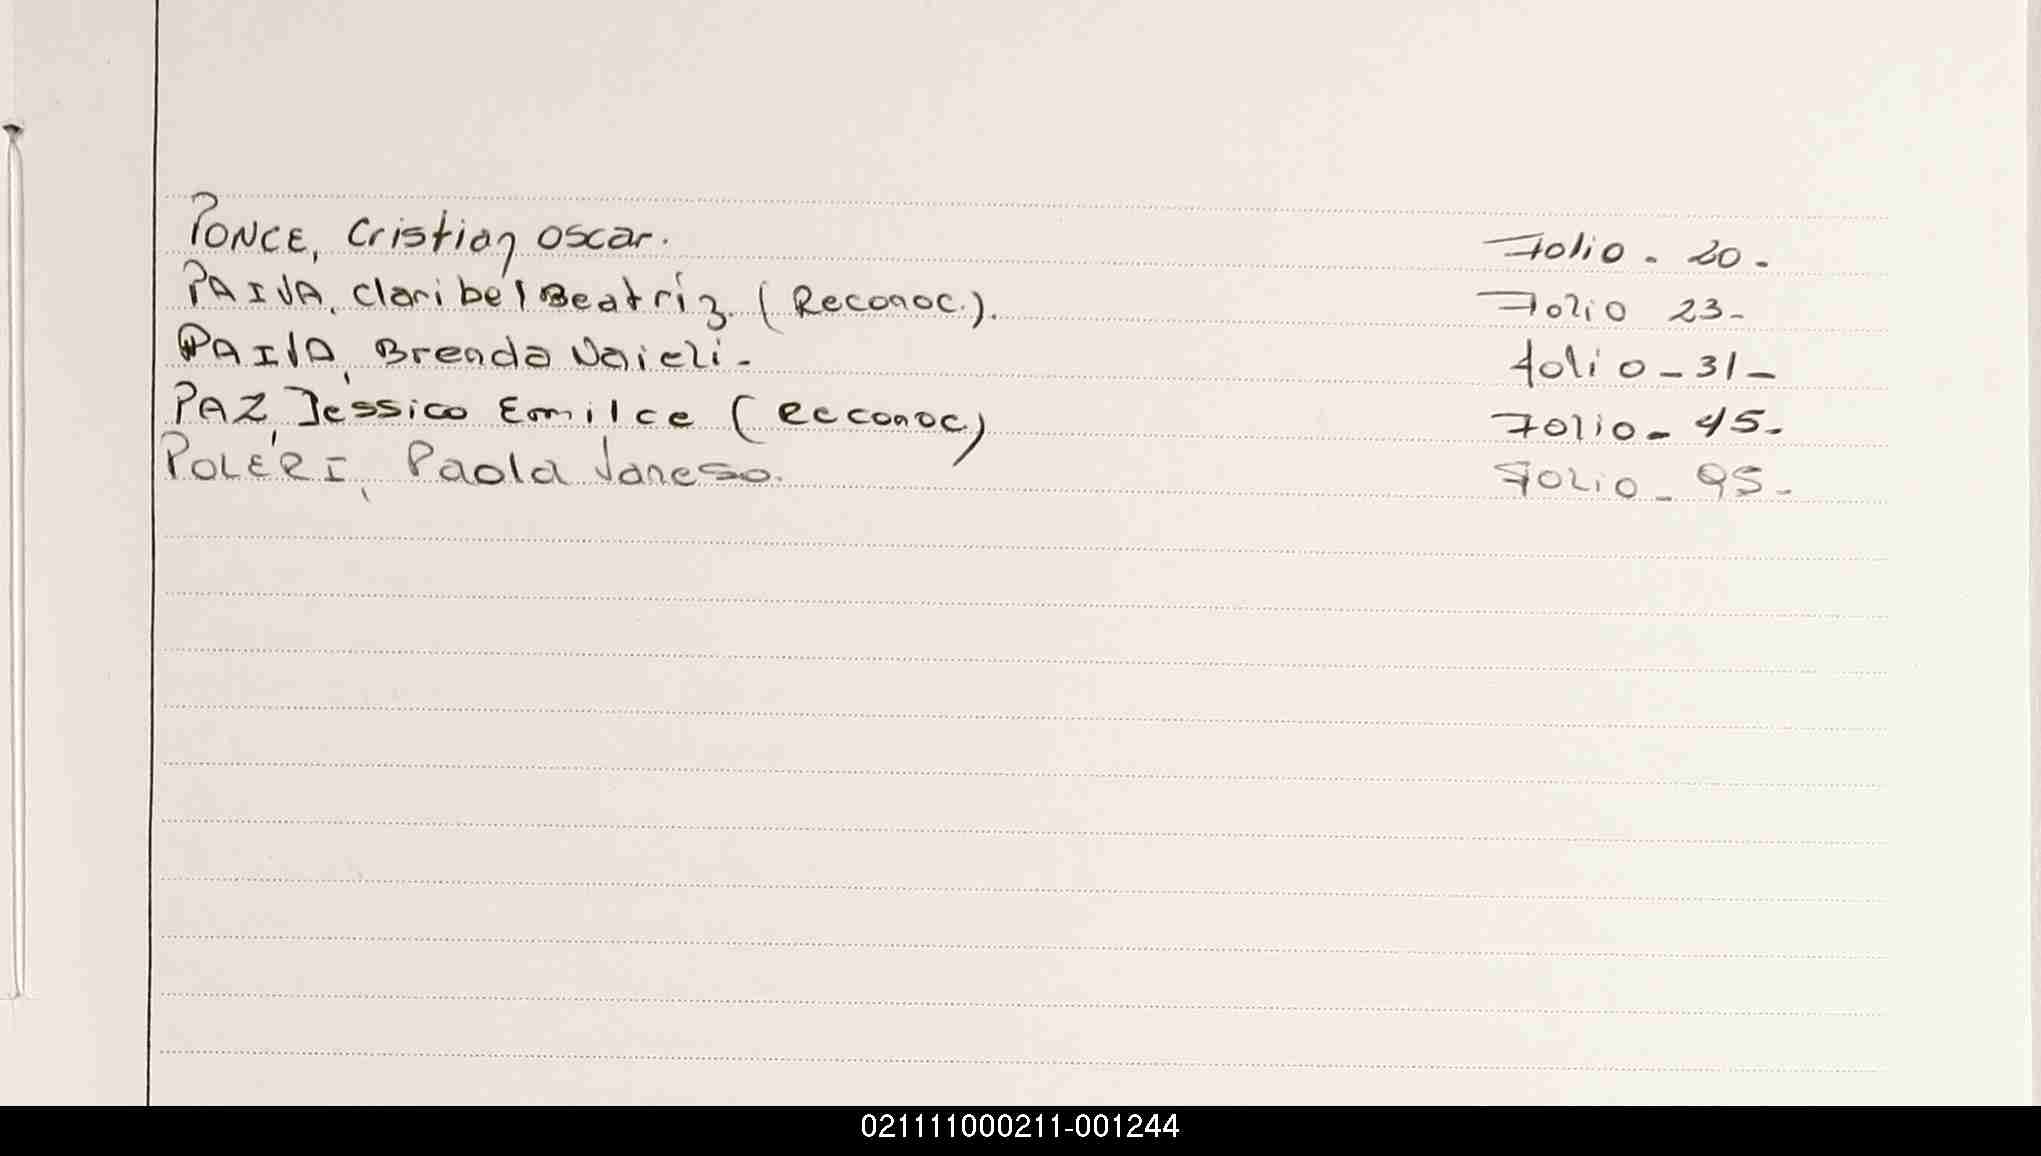 PONCE, Cristian Oscar. Folio - 20 -
PAIVA, Claribel Beatriz. (Reconoc.). Folio 23 -
PAIVA, Brenda Naieli - folio - 31 -
PAZ, Jessica Emilce (Reconoc.) Folio - 45 -
POLERI, Paola Vanesa. Folio - 95 -
021111000211-001244